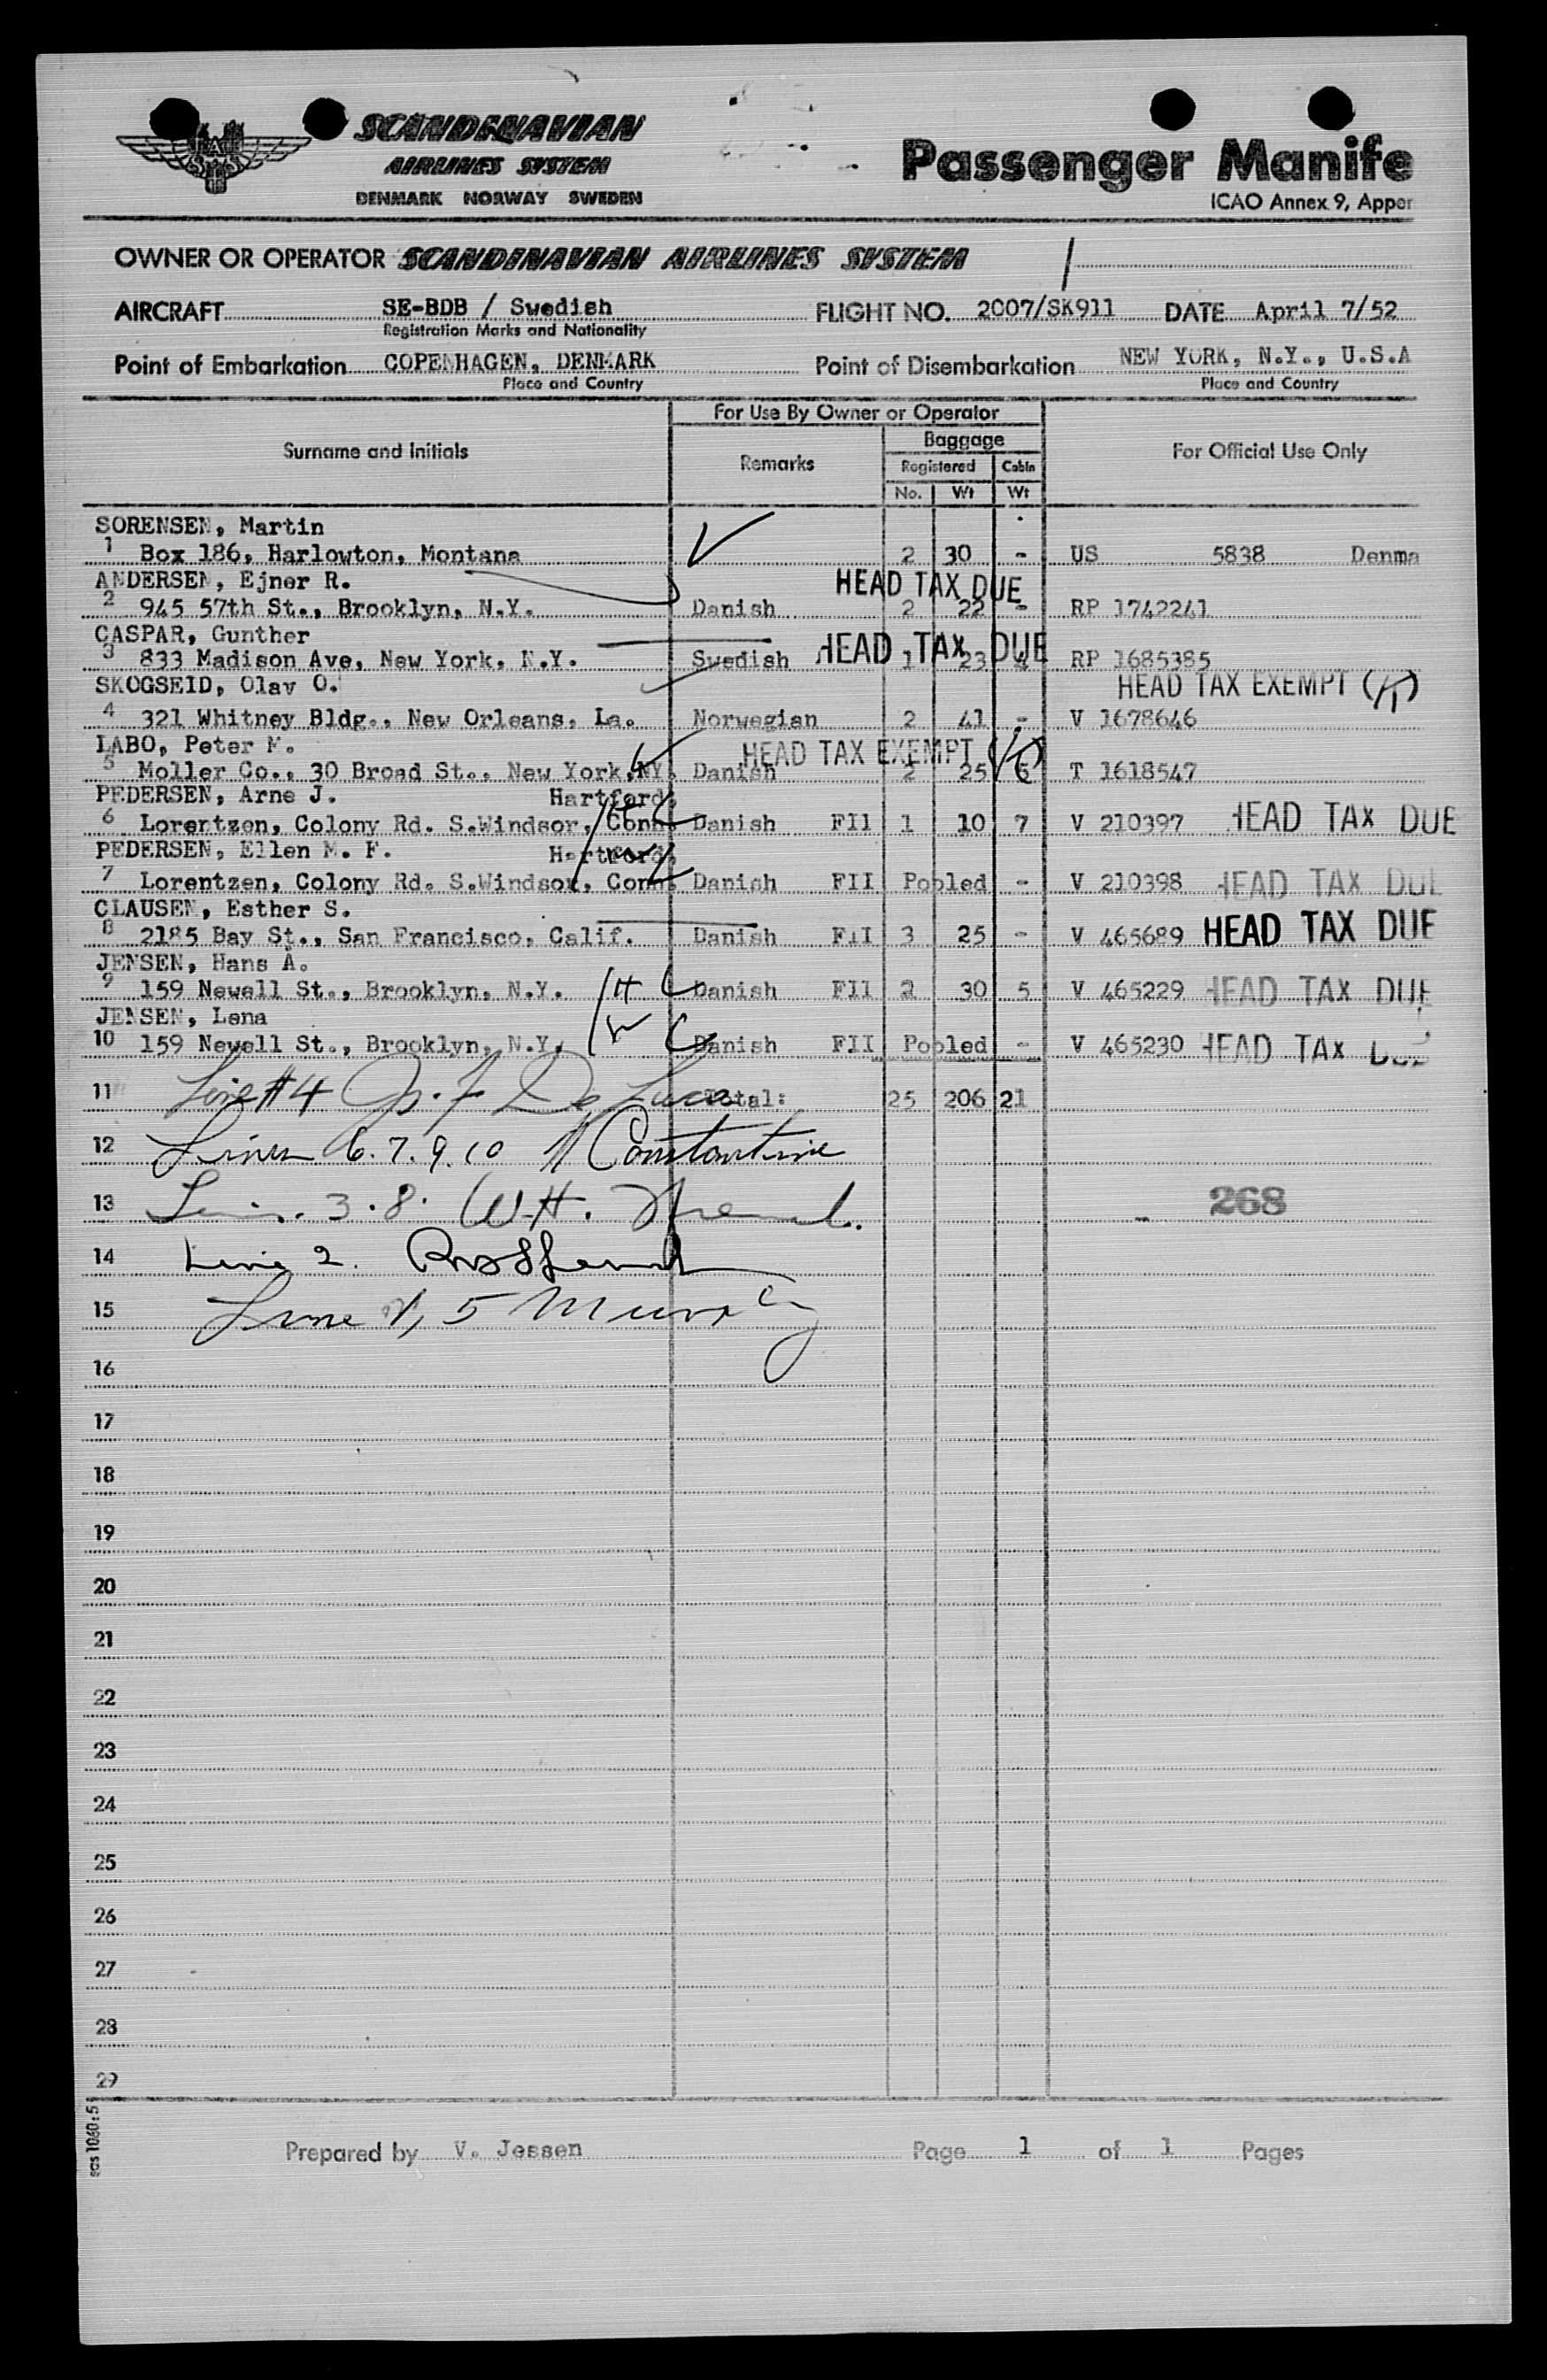 SCANDINAVIAN
AIRLINES SYSTEM
DENMARK NORWAY SWEDEN
Passenger Manife
ICAO Annex 9, Apper
OWNER OR OPERATOR SCANDINAVIAN AIRLINES SYSTEM
AIRCRAFT SE-BDB / Swedish FLIGHT NO. 2007/SK911 DATE April 7/52
Registration Marks and Nationality
Point of Embarkation COPENHAGEN, DENMARK Point of Disembarkation NEW YORK, N.Y., U.S.A
Place and Country Place and Country
For Use By Owner or Operator
Surname and Initials Remarks Baggage For Official Use Only
Registered Cabin
No. Wt Wt
SORENSEN, Martin
1 Box 186, Harlowton, Montana 2 30 - US 5838 Denma
ANDERSEN, Ejner R. HEAD TAX DUE
2 945 57th St., Brooklyn, N.Y. Danish 2 22 - RP 1742241
CASPAR, Gunther HEAD TAX DUE
3 833 Madison Ave, New York, N.Y. Swedish 1 23 4 RP 1685385
SKOGSEID, Olav O. HEAD TAX EXEMPT
4 321 Whitney Bldg., New Orleans, La. Norwegian 2 41 - V 1678646
LABO, Peter M. HEAD TAX EXEMPT
5 Moller Co., 30 Broad St., New York, NY. Danish 2 25 5 T 1618547
PEDERSEN, Arne J. Hartford,
6 Lorentzen, Colony Rd. S.Windsor, Conn. Danish FII 1 10 7 V 210397 HEAD TAX DUE
PEDERSEN, Ellen M. F. Hartford,
7 Lorentzen, Colony Rd. S.Windsor, Conn. Danish FII Pooled - V 210398 HEAD TAX DUE
CLAUSEN, Esther S.
8 2185 Bay St., San Francisco, Calif. Danish FII 3 25 - V 465689 HEAD TAX DUE
JENSEN, Hans A.
9 159 Newell St., Brooklyn, N.Y. H Danish FII 2 30 5 V 465229 HEAD TAX DUE
JENSEN, Lena
10 159 Newell St., Brooklyn, N.Y. W Danish FII Pooled - V 465230 HEAD TAX DUE
11 Line #4 Total: 25 206 21
12 Lines 6.7.9.10 Constantine
13 3.8. W.H. 268
14 Line 2.
15 Line 1, 5 Murphy
16
17
18
19
20
21
22
23
24
25
26
27
28
29
sas 1060:5
Prepared by V. Jessen Page 1 of 1 Pages